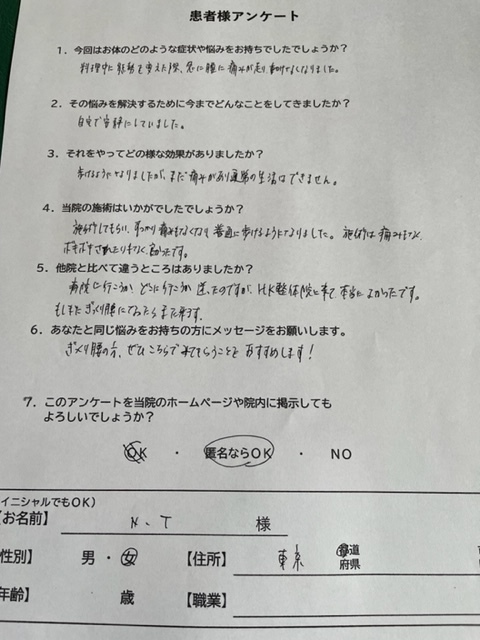 患者様アンケート
1．今回はお体のどのような症状や悩みをお持ちでしたでしょうか？
料理中に体勢を変えた際、急に腰に痛みが走り動けなくなりました。
2．その悩みを解決するために今までどんなことをしてきましたか？
自宅で安静にしていました。
3．それをやってどの様な効果がありましたか？
歩けるようになりましたが、まだ痛みがあり通常の生活はできません。
4．当院の施術はいかがでしたでしょうか？
施術してもらい、すっかり痛みもなくなり普通に歩けるようになりました。施術は痛みもなく、
ボキボキされたりもなく、良かったです。
5．他院と比べて違うところはありましたか？
病院に行こうか、どこに行こうか迷ったのですが、HK整体院に来て本当によかったです。
もしまたぎっくり腰になったらまた来ます。
6．あなたと同じ悩みをお持ちの方にメッセージをお願いします。
ぎっくり腰の方、ぜひこちらでみてもらうことをおすすめします！
7．このアンケートを当院のホームページや院内に掲示しても
よろしいでしょうか？
OK ・ 匿名ならOK ・ NO
イニシャルでもOK）
【お名前】 N.T 様
性別】 男・女 【住所】 東京 都道
府県
年齢】 歳 【職業】